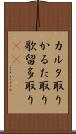 カルタ取り
かるた取り
歌留多取り